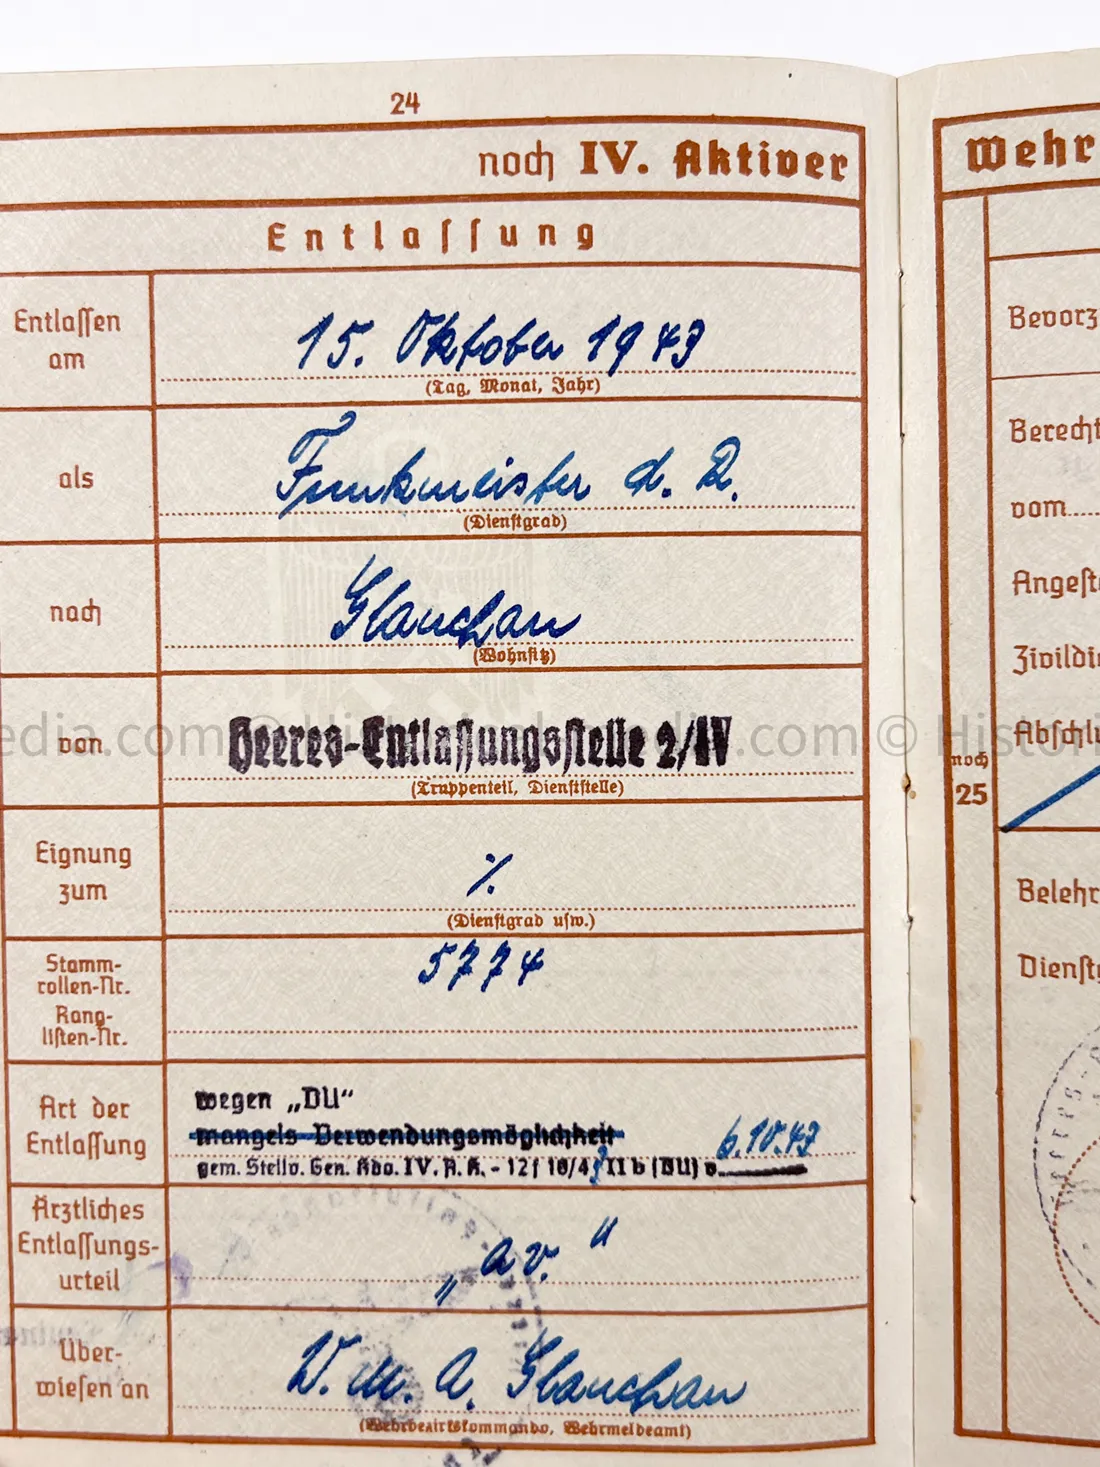 24
noch IV. Aktiver
Entlassung
Entlassen am
15. Oktober 1943
(Tag, Monat, Jahr)
als
Funkmeister d. R.
(Dienstgrad)
nach
Glauchau
(Wohnsitz)
von
Heeres-Entlassungsstelle 2/IV
(Truppenteil, Dienststelle)
Eignung zum
%
(Dienstgrad usw.)
Stamm-
rollen-Nr.
Rang-
listen-Nr.
5774
Art der
Entlassung
wegen „DU“
mangels Verwendungsmöglichkeit
gem. Stellv. Gen. Kdo. IV. A. K. - 12f 10/43 II b (DU) v. 6.10.43
Ärztliches
Entlassungs-
urteil
„av.“
Über-
wiesen an
W. M. A. Glauchau
(Wehrbezirkskommando, Wehrmeldeamt)
Wehr
Bevorz
Berecht
vom
Angest
Zivildi
Abschlu
noch
25
Belehr
Dienstg
edia.com © Histori media.com © Histori